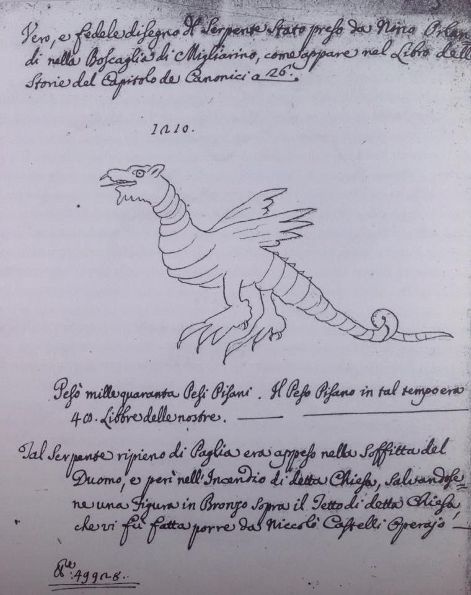 Vero, e fedele disegno del Serpente stato preso da Nino Orlan
di nella Boscaglia di Migliarino, come appare nel Libro delle
Storie del Capitolo de Canonici a 26.
1210.
Pesò mille quaranta Pesi Pisani. Il Peso Pisano in tal tempo era
40. Libbre delle nostre.
Tal Serpente ripieno di Paglia era appeso nella Soffitta del
Duomo, e perì nell'Incendio di detta Chiesa, salvandose=
ne una Figura in Bronzo sopra il Tetto di detta Chiesa,
che vi fù fatta porre da Niccolò Castelli Operajo
49928.